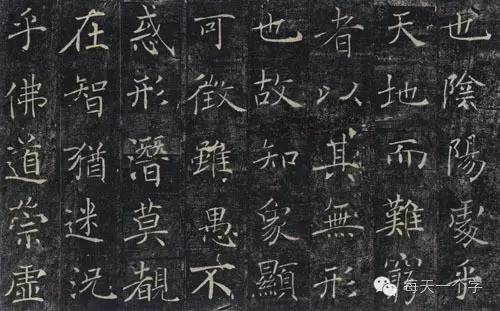 也陰陽處乎
天地而難窮
者以其無形
也故知象顯
可徵雖愚不
惑形潛莫覩
在智猶迷況
乎佛道崇虛
每天一个字